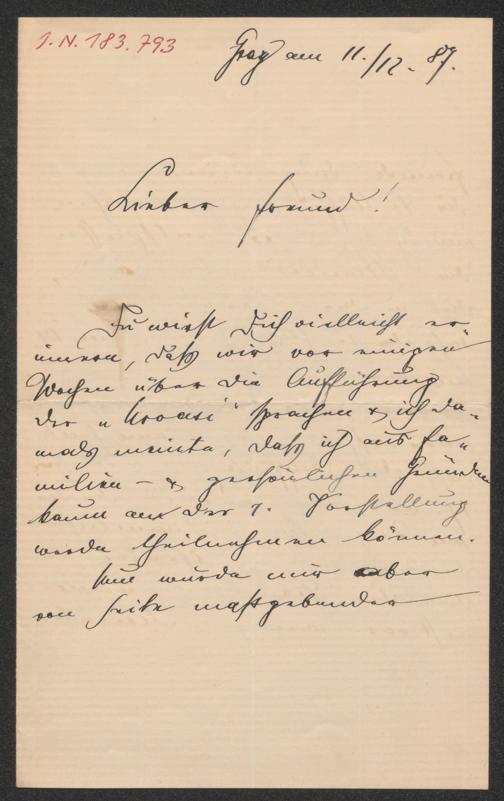 I. N. 183.793
Graz am 11./12. 87.
Lieber Freund!
Du wirst Dich vielleicht er-
innern, daß wir vor einigen
Wochen über die Aufführung
der „ " sprachen & ich da-
mals meinte, daß ich aus fa-
milien- & persönlichen Gründen
kaum an der 1. Vorstellung
werde theilnehmen können.
Nun wurde mir aber
von Seite maßgebender